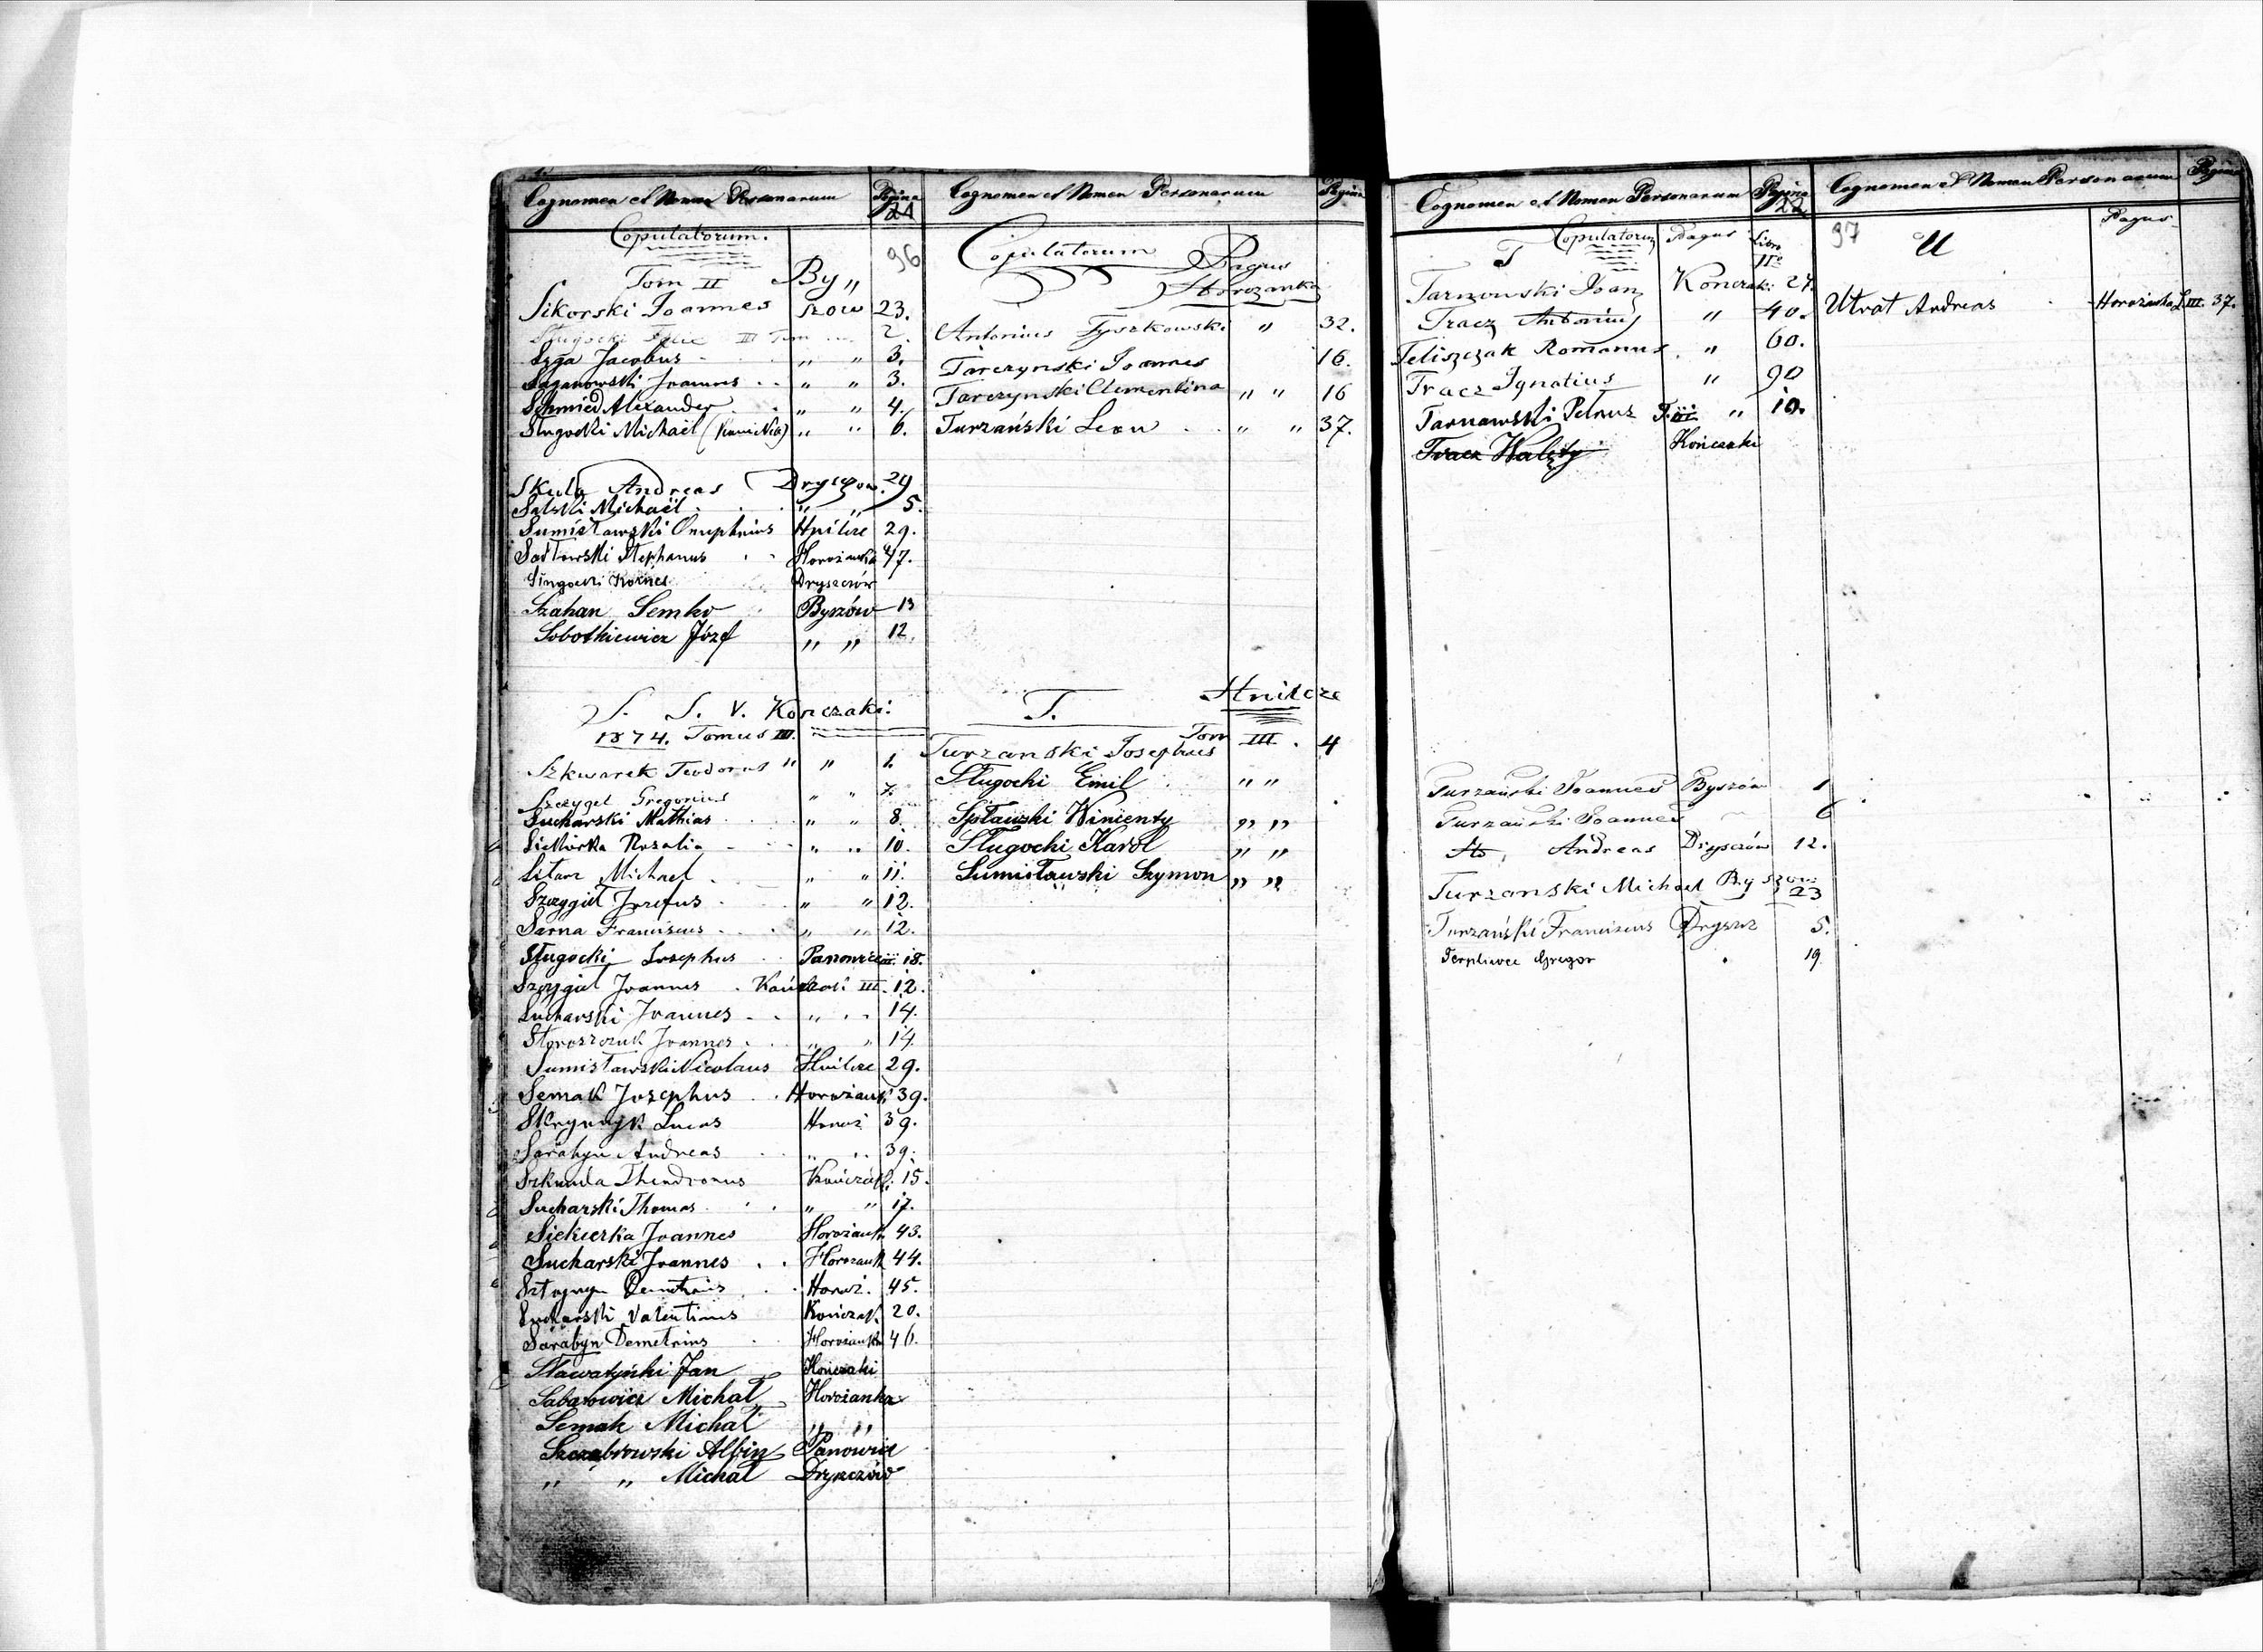 Cognomen et Nomen Personarum Pagina
21
Copulatorum.
96
Tom II By„
Sikorski Joannes szow 23.
III Tom 2.
Szga Jacobus „ „ 3.
Saganowski Joannes „ „ 3.
Schmied Alexander „ „ 4.
Sługocki Michael „ „ 6.
Skula Andreas Dryszow. 29
Salski Michael „ „ 5.
Sumisławski Onuphrius Hnilcze 29.
Sodłowski Stephanus Horożanka 47.
Dryszczów
Szahan Semko Byszów 13
Sobotkiewicz Józef „ „ 12.
S. S. V. Konczaki.
1874. Tomus III.
Szkwarek Teodorus „ „ 1.
Szczygel Gregorius „ „ 7.
Sucharski Mathias „ „ 8.
Siekirka Rozalia „ „ 10.
Sitarz Michael „ „ 11.
Szczygiel Josefus „ „ 12.
Sarna Franciscus „ „ 12.
Sługocki Josephus Panowice 18.
Szczygieł Joannes Kończaki III. 12.
Sucharski Joannes „ 14.
Storoszczuk Joannes „ „ 14.
Sumisławski Nicolaus Hnilcze 29.
Semak Josephus Horożank 39.
Skrynyk Lucas Horoż 39.
Sarahyn Andreas „ 39.
Szkunda Theodorus Kończak. 15.
Sucharski Thomas „ „ 17.
Siekierka Joannes Horożank 43.
Sucharski Joannes Horożank 44.
Demetrius Horoż. 45.
Sucharski Valentinus Kończak. 20.
Sarabyn Demetrius Horożanka 46.
Sławatyński Jan Kończaki
Sabatowicz Michał Horożanka
Semak Michał „ „
Szczabrowski Albin Panowice
„ „ Michał Dryszczów
Cognomen et Nomen Personarum Pagina
Copulatorum Pagus
Horożanka
Antonius Tyszkowski „ 32.
Tarczynski Joannes 16.
Tarczynski Clementina „ „ 16
Turzański Leon „ „ 37.
T. Hnilcze
Tom III. 4
Turzanski Josephus
Sługocki Emil „ „
Spławski Wincenty „ „
Sługocki Karol „ „
Sumisławski Szymon „ „
Cognomen et Nomen Personarum Pagina
22
T Copulatorum Pagus Libro
II
Tarnowski Joan Konczaki 27.
Tracz Antonius „ 40.
Teliszczak Romanus „ 60.
Tracz Ignatius „ 90
Tarnawski Petrus T. III „ 10.
Tracz Kończaki
Turzański Joannes Byszów 1
Turzański Joannes 6
Andreas Dryszczów 12.
Turzanski Michael Byszow 23
Turzański Franciscus Dryszcz 5.
Gregor 19
Cognomen et Nomen Personarum Pagina
97 U Pagus
Utrat Andreas Horożanka L III. 37.